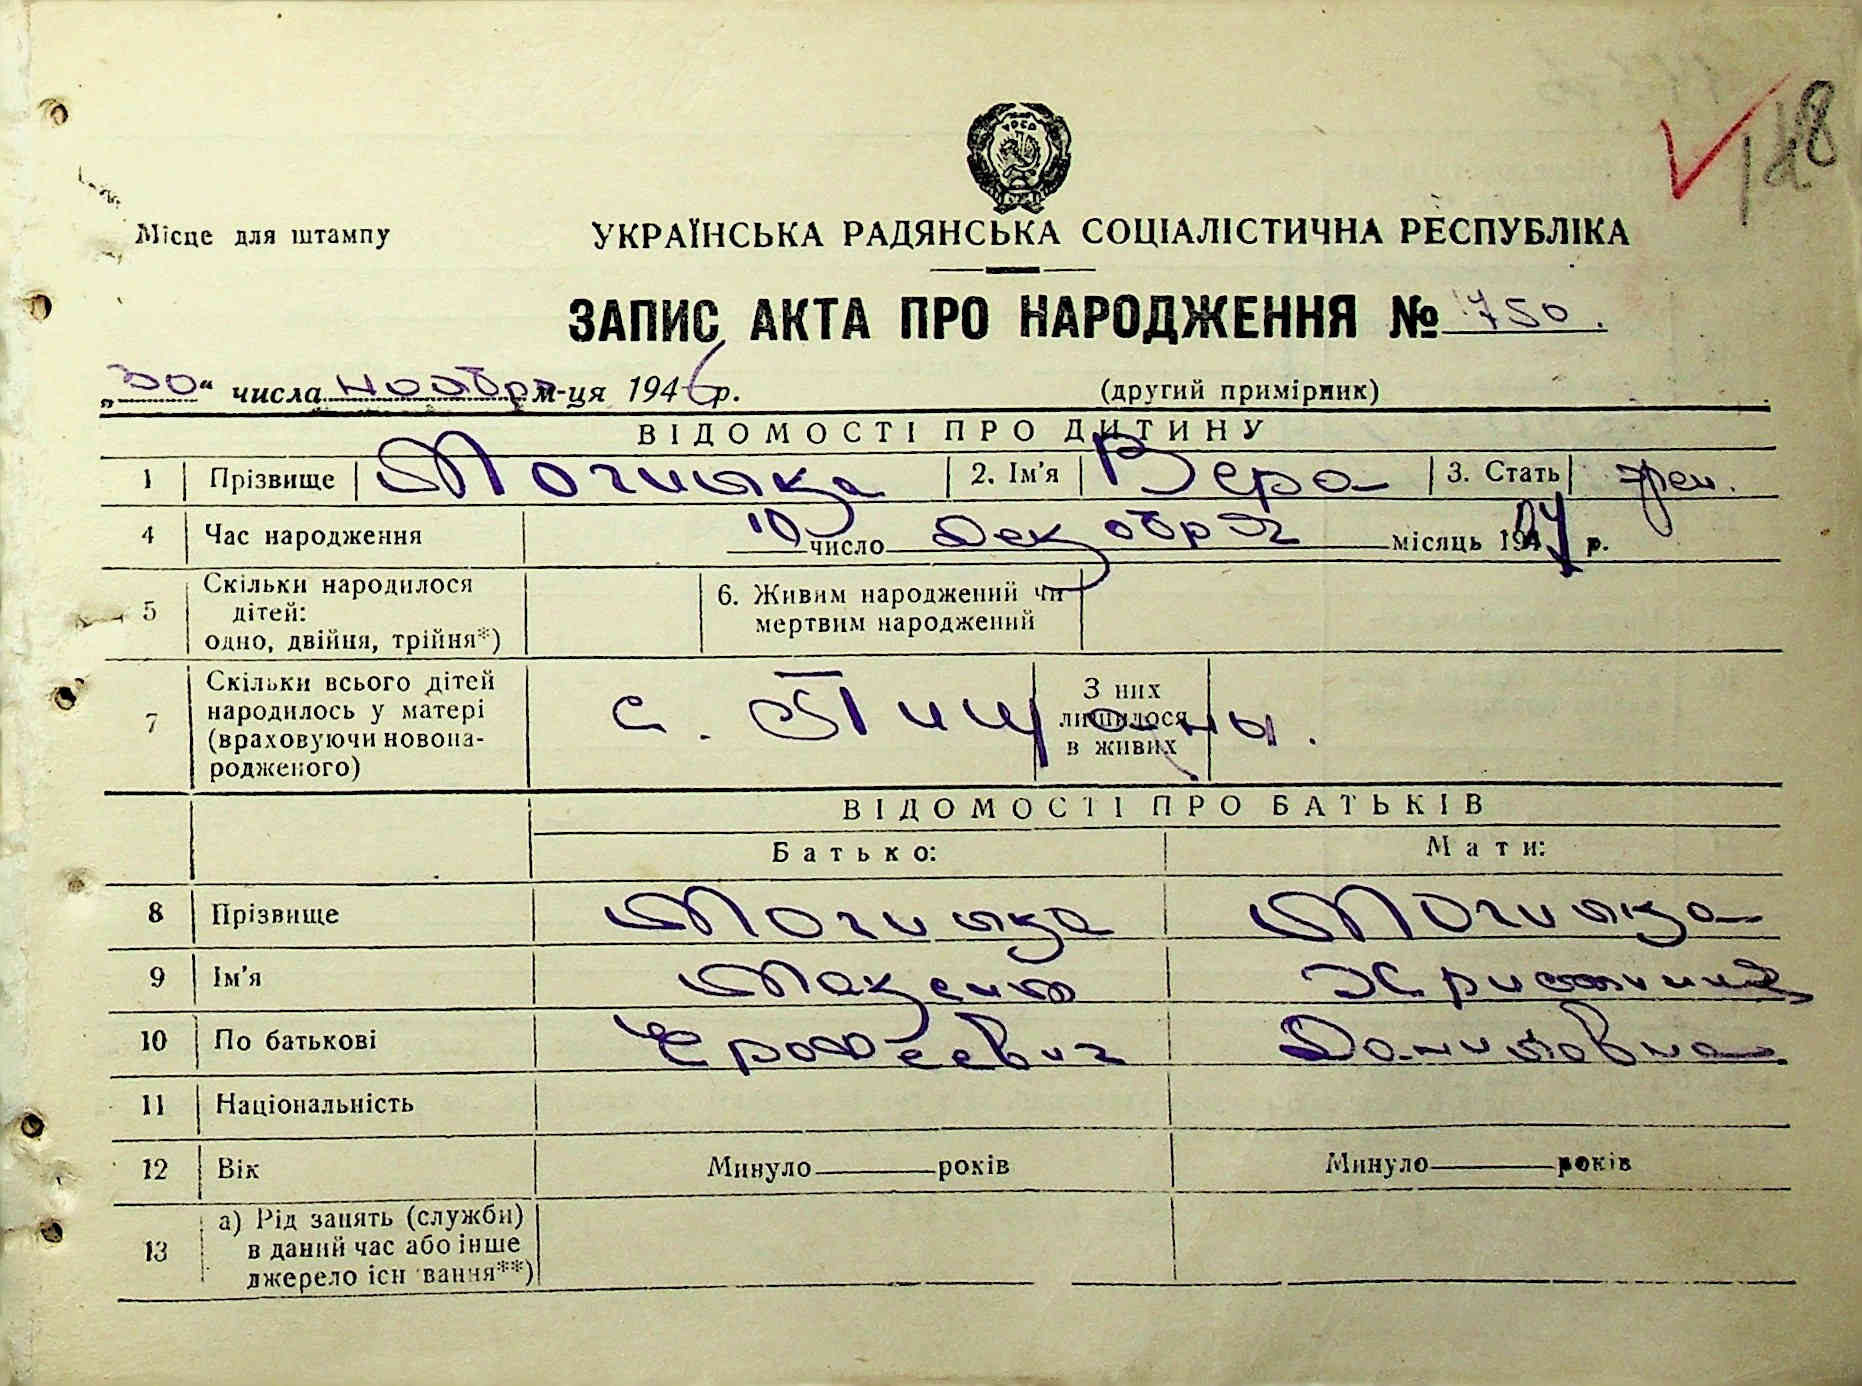 128
УРСР
Місце для штампу
УКРАЇНСЬКА РАДЯНСЬКА СОЦІАЛІСТИЧНА РЕСПУБЛІКА
ЗАПИС АКТА ПРО НАРОДЖЕННЯ № 750.
„30“ числа ноября м-ця 1946 р. (другий примірник)
ВІДОМОСТІ ПРО ДИТИНУ
1 Прізвище Могилка 2. Ім'я Вера 3. Стать жен.
4 Час народження 10 число декабря місяць 19 р.
5 Скільки народилося дітей: одно, двійня, трійня*) 6. Живим народжений чи мертвим народжений
7 Скільки всього дітей народилось у матері (враховуючи новона-родженого) З них лишилося в живих
с. Тишаны.
ВІДОМОСТІ ПРО БАТЬКІВ
Батько: Мати:
8 Прізвище Могилка Могилка
9 Ім'я Максим Христиния
10 По батькові Ерофеевич Даниловна
11 Національність
12 Вік Минуло років Минуло років
13 а) Рід занять (служби)
в даний час або інше
джерело існ вання**)